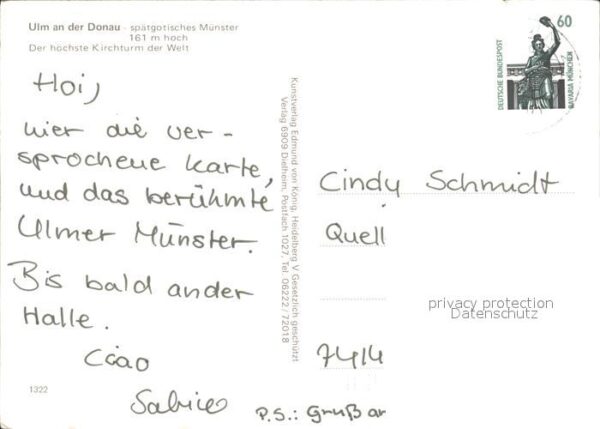 Ulm an der Donau - spätgotisches Münster
161 m hoch
Der höchste Kirchturm der Welt
Hoi,
hier die ver-
sprochene Karte,
und das berühmte
Ulmer Münster.
Bis bald an der
Halle.
Ciao
P.S.: Gruß an
1322
Kunstverlag Edmund von König, Heidelberg V Gesetzlich geschützt
Verlag 6909 Dielheim, Postfach 1027, Tel. 06222/72018
60
DEUTSCHE BUNDESPOST
BAVARIA MÜNCHEN
Cindy Schmidt
Quell
privacy protection
Datenschutz
7414